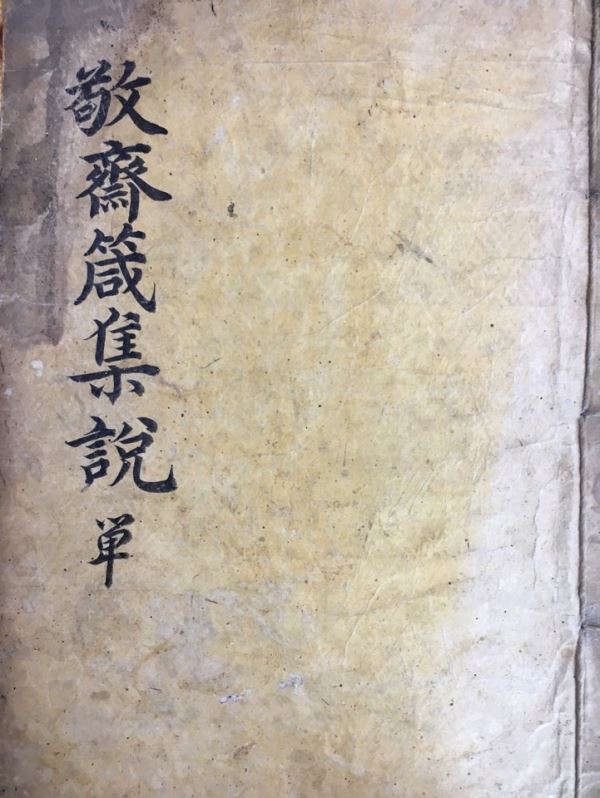 敬齋箴集說 単